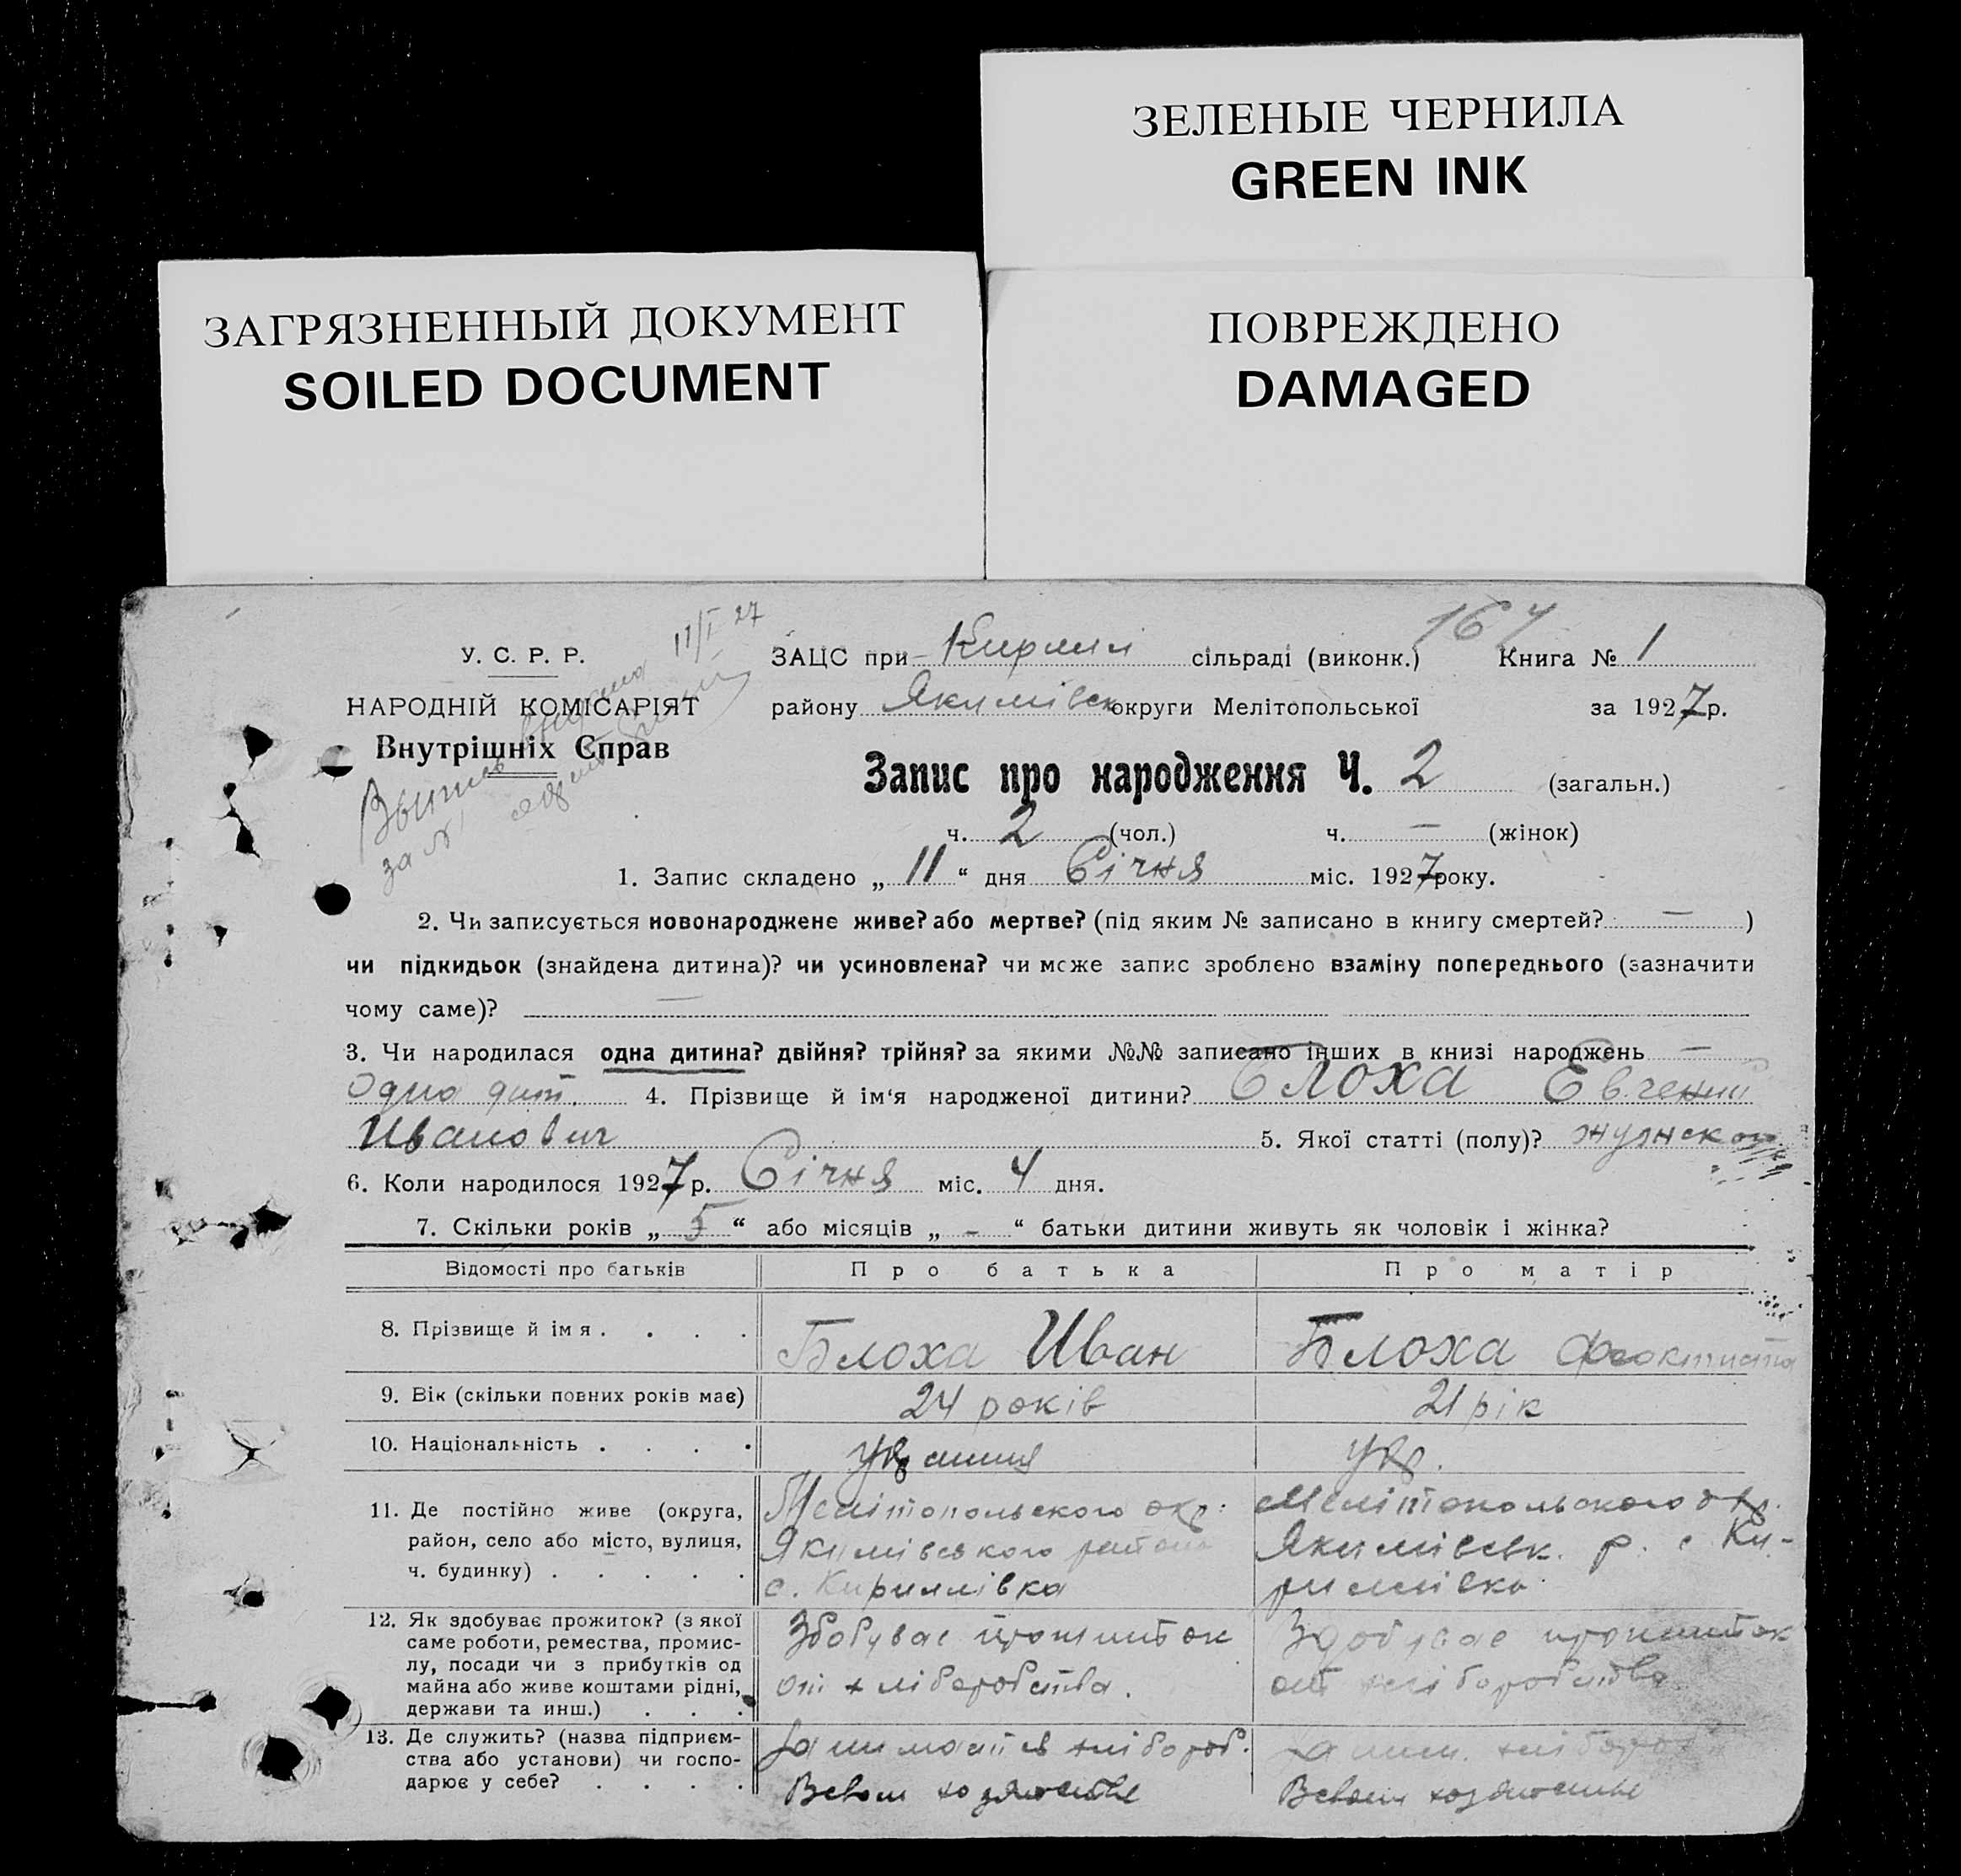 ЗЕЛЕНЫЕ ЧЕРНИЛА
GREEN INK
ЗАГРЯЗНЕННЫЙ ДОКУМЕНТ
SOILED DOCUMENT
ПОВРЕЖДЕНО
DAMAGED
11/I 27
164
У. С. Р. Р.
НАРОДНІЙ КОМІСАРІЯТ
Внутрішніх Справ
за №
ЗАЦС при Кирилл сільраді (виконк.) Книга № 1
району Якимівськ округи Мелітопольської за 1927р.
Запис про народження Ч. 2 (загальн.)
ч. 2 (чол.) ч. — (жінок)
1. Запис складено „ 11 “ дня Січня міс. 1927року.
2. Чи записується новонароджене живе? або мертве? (під яким № записано в книгу смертей? — )
чи підкидьок (знайдена дитина)? чи усиновлена? чи може запис зроблєно взаміну попереднього (зазначити
чому саме)? —
3. Чи народилася одна дитина? двійня? трійня? за якими №№ записано інших в книзі народжень —
Одна дит. 4. Прізвище й ім‘я народженої дитини? Блоха Евгений
Иванович 5. Якої статті (полу)?
6. Коли народилося 1927р. Січня міс. 4 дня.
7. Скільки років „ 5 “ або місяців „ - “ батьки дитини живуть як чоловік і жінка?
Відомості про батьків Про батька Про матір
8. Прізвище й імя . . . . Блоха Иван Блоха Феоктиста
9. Вік (скільки повних років має) 24 років 21 рік
10. Національність . . . . Укр.
11. Де постійно живе (округа, Мелітопольского окр. Мелітопольского окр.
район, село або місто, вулиця, Якимівського района Якимівськ. р. с Ки-
ч. будинку) . . . . . с. Кириллівка риллівка
12. Як здобуває прожиток? (з якої
саме роботи, ремества, промис- Здобувае прожиток Здобувае прожиток
лу, посади чи з прибутків од
майна або живе коштами рідні, от хліборобства. от хліборобства
держави та инш.) . . .
13. Де служить? (назва підприєм- хлібороб. хлібороб
ства або установи) чи госпо-
дарює у себе? . . . . В свом хозяистве В своем хозяистве